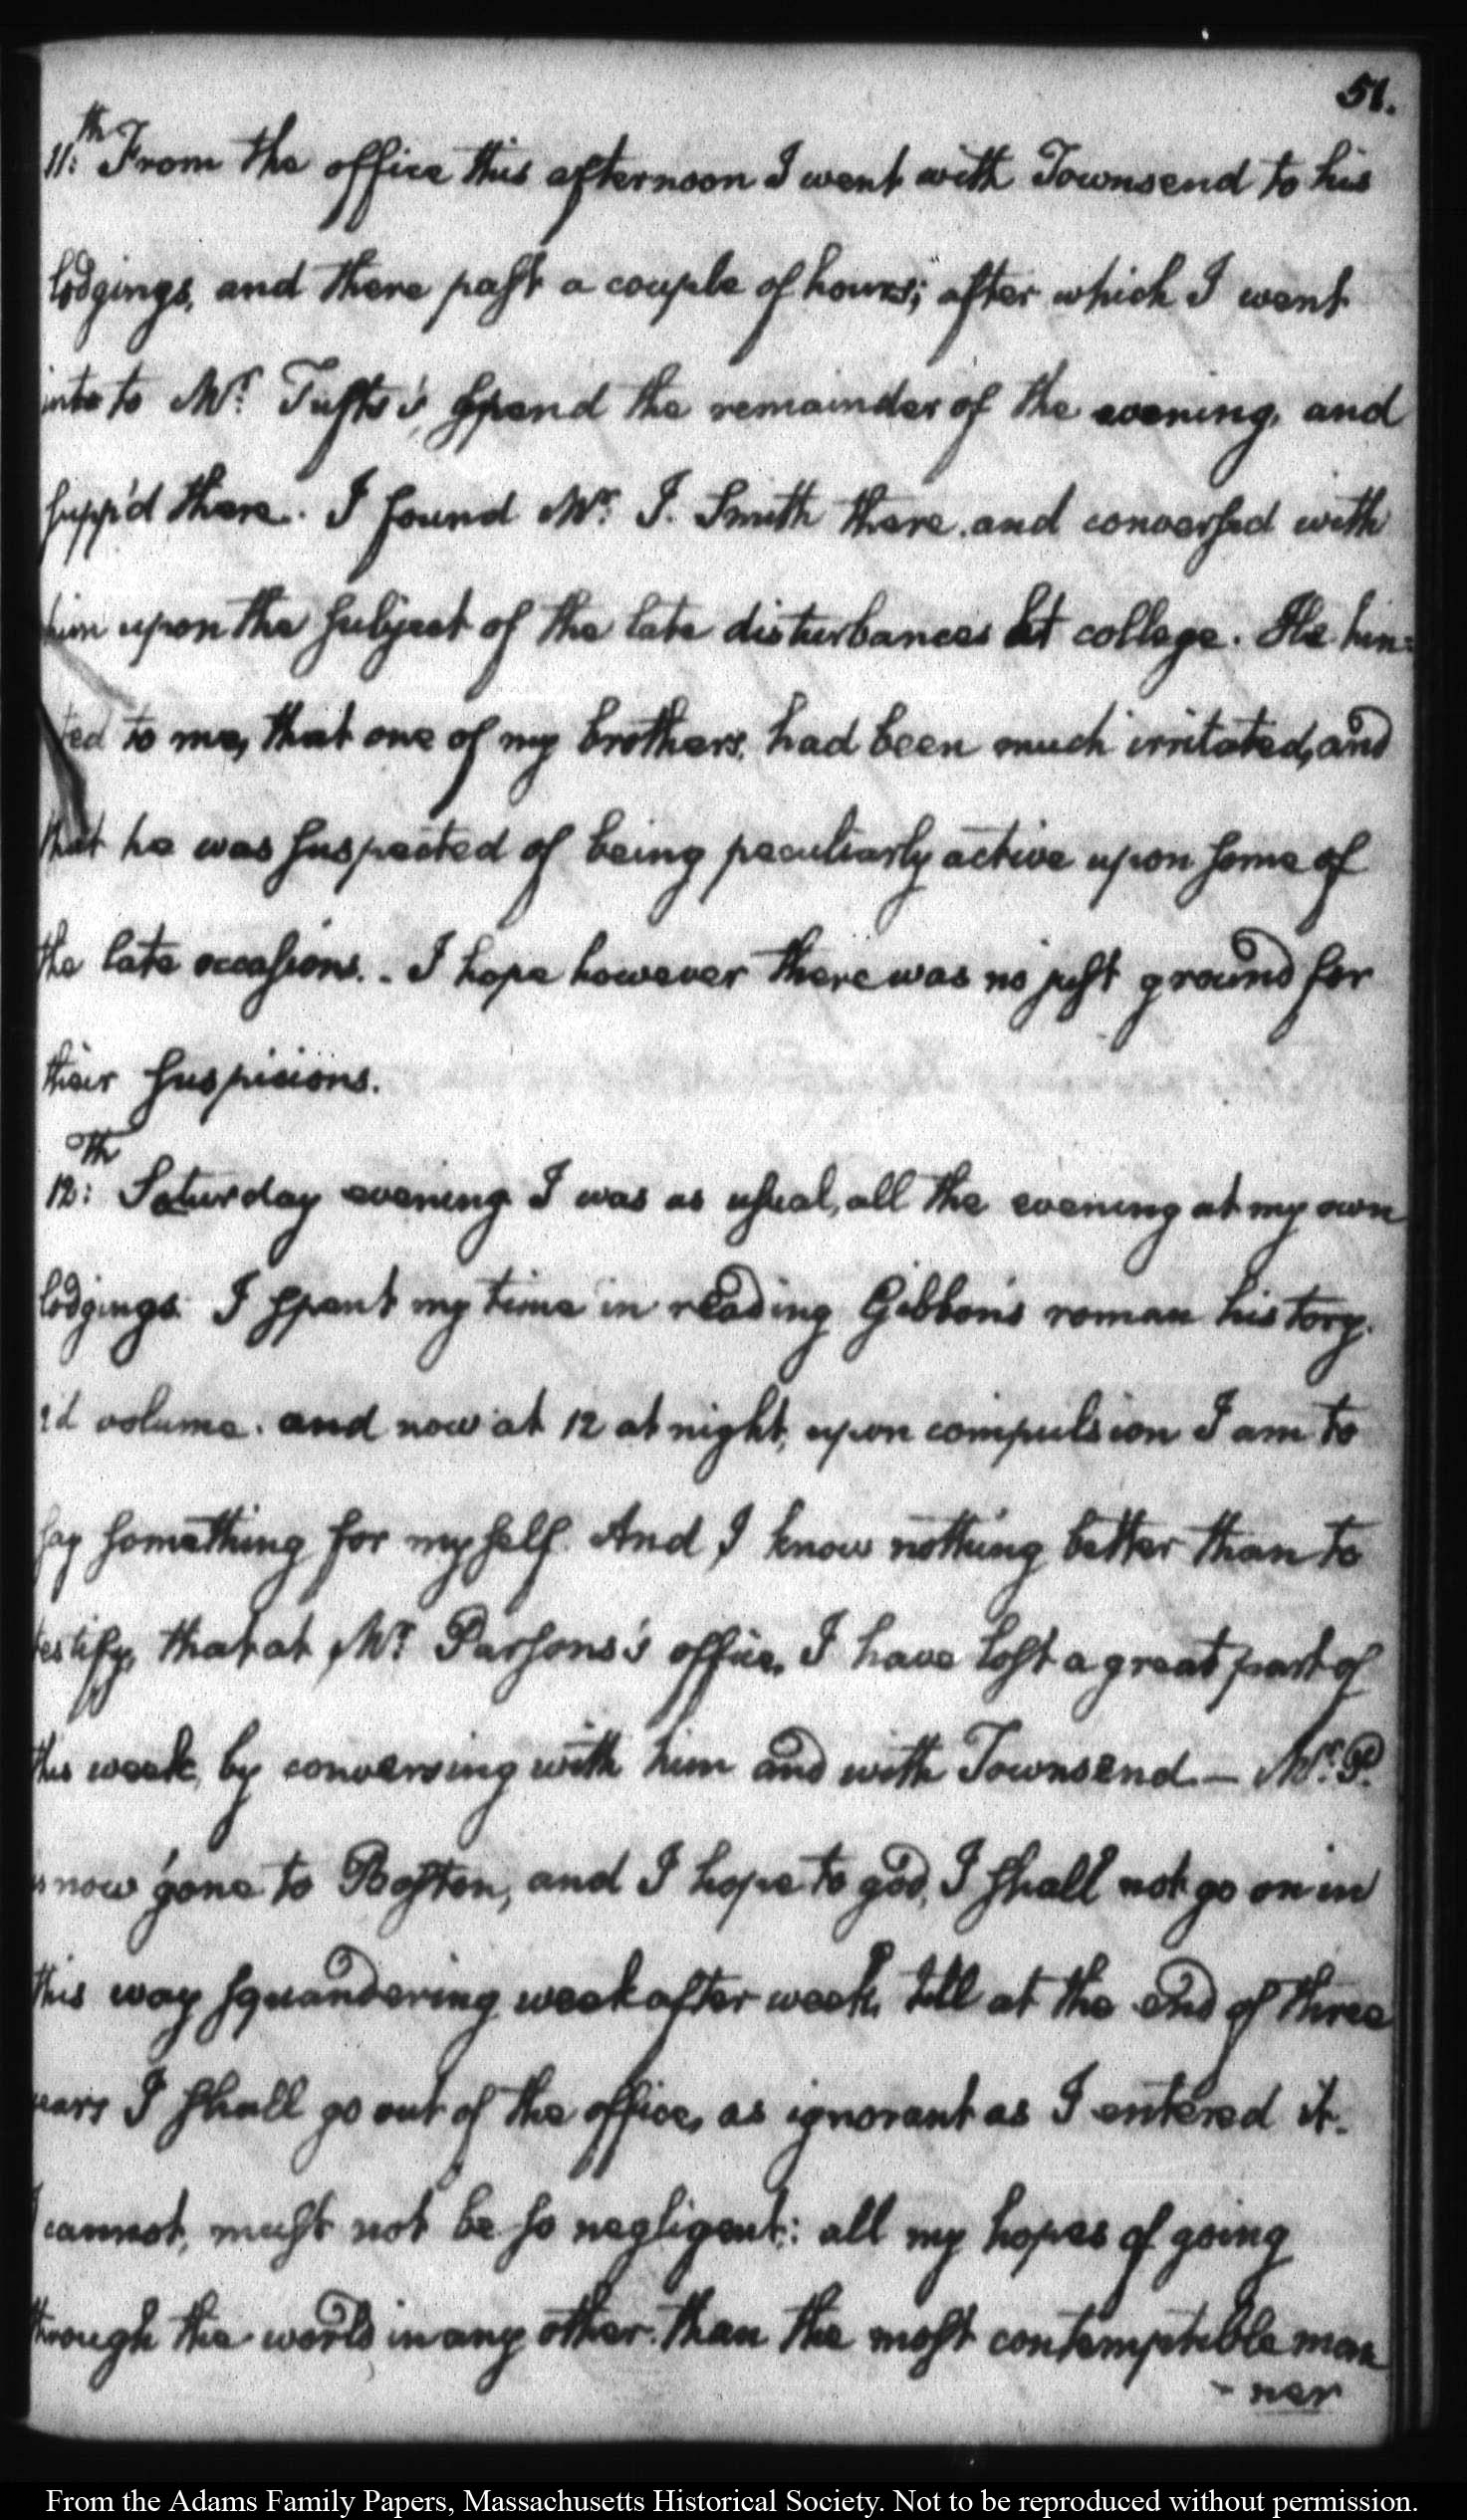 51.
11:th From the office this afternoon I went with Townsend to his
lodgings, and there past a couple of hours; after which I went
into to Mr. Tufts's, spend the remainder of the evening, and
supp'd there. I found Mr. J. Smith there, and conversed with
him upon the subject of the late disturbances at college. He hin=
ted to me, that one of my brothers, had been much irritated, and
that he was suspected of being peculiarly active upon some of
the late occasions. - I hope however there was no just ground for
their suspicions.
12:th Saturday evening I was as usual, all the evening at my own
lodgings. I spent my time in reading Gibbon's roman history.
2d volume. and now at 12 at night, upon compulsion I am to
say something for myself. And I know nothing better than to
testify, that at Mr. Parsons's office, I have lost a great part of
this week, by conversing with him and with Townsend. — Mr. P.
is now gone to Boston, and I hope to god, I shall not go on in
this way squandering week after week, till at the end of three
years I shall go out of the office, as ignorant as I entered it.
I cannot, must not be so negligent: all my hopes of going
through the world in any other than the most contemptible man
- ner
From the Adams Family Papers, Massachusetts Historical Society. Not to be reproduced without permission.